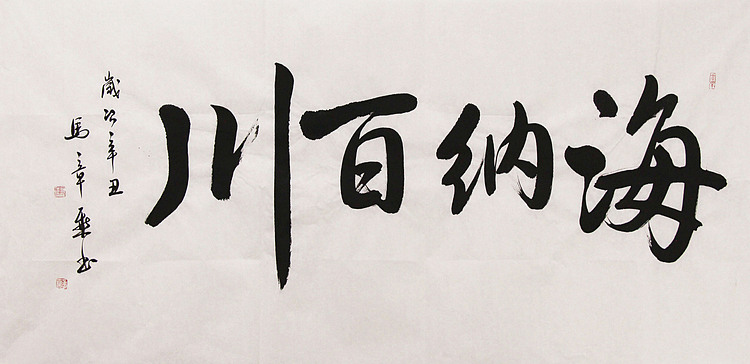 海纳百川
歲次辛丑
馬章乘书